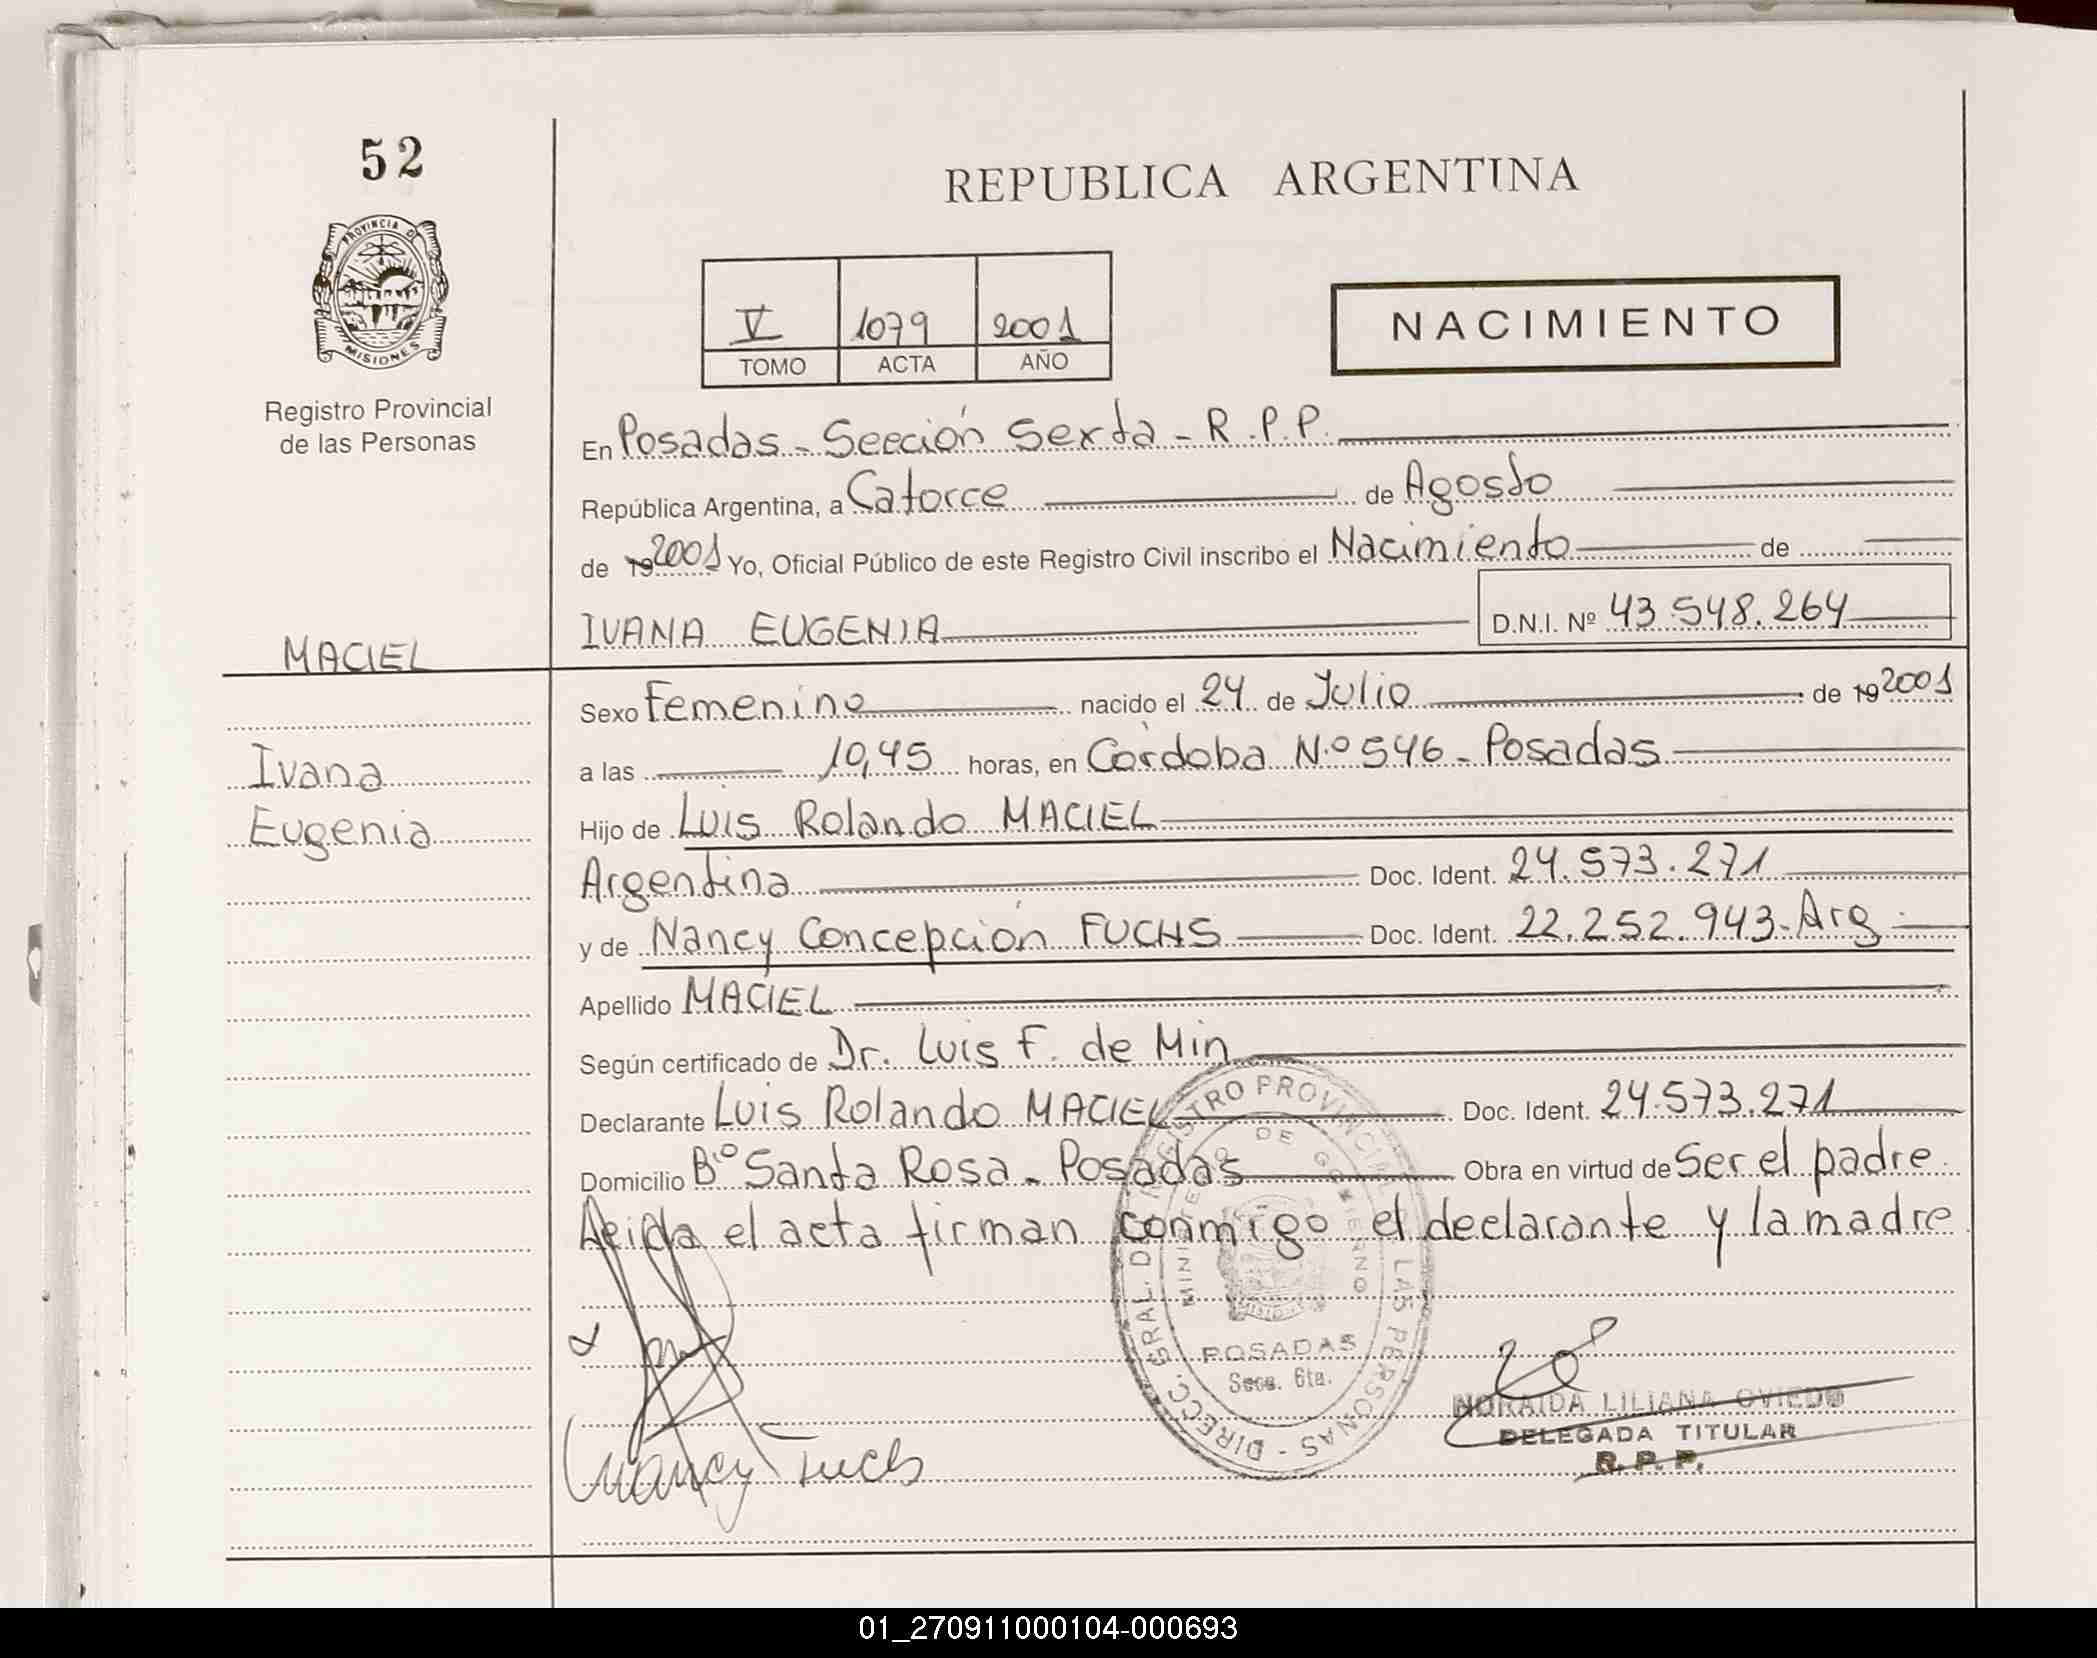 52
REPUBLICA ARGENTINA
PROVINCIA D
MISIONES
Registro Provincial
de las Personas
V 1079 2001
TOMO ACTA AÑO
NACIMIENTO
En Posadas - Sección Sexta - R.P.P.
República Argentina, a Catorce de Agosto
de 192001 Yo, Oficial Público de este Registro Civil inscribo el Nacimiento de
IVANA EUGENIA D.N.I. Nº 43.548.264
MACIEL
Sexo Femenino nacido el 24 de Julio de 192001
Ivana
a las 10,45 horas, en Córdoba N.º 546 - Posadas
Eugenia
Hijo de Luis Rolando MACIEL
Argentina Doc. Ident. 24.573.271
y de Nancy Concepción FUCHS Doc. Ident. 22.252.943-Arg.
Apellido MACIEL
Según certificado de Dr. Luis F. de Min
Declarante Luis Rolando MACIEL Doc. Ident. 24.573.271
Domicilio Bº Santa Rosa - Posadas Obra en virtud de Ser el padre.
Leida el acta firman conmigo el declarante y la madre
DIRECC. GRAL. DEL REGISTRO PROVINCIAL DE LAS PERSONAS
MINISTERIO DE GOBIERNO
POSADAS
Secc. 6ta.
NORAIDA LILIANA OVIEDO
DELEGADA TITULAR
R. P. P.
Nancy Fuchs
01_270911000104-000693